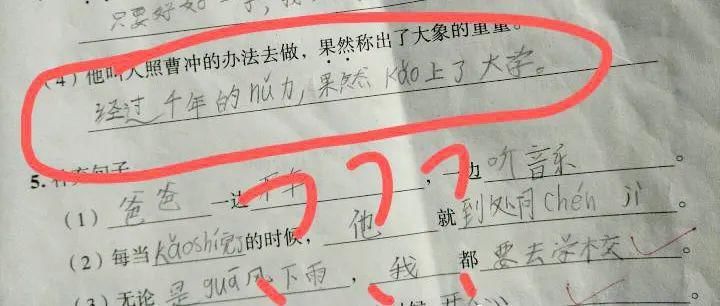 只要好好
(4) 他叫人照曹冲的办法去做，果然称出了大象的重量。
经过千年的nǔ力，果然kǎo上了大学。
5. 补充句子
(1) 爸爸一边开车，一边听音乐。
(2) 每当kǎoshì完了的时候，他就到处问chénjì。
(3) 无论是guā风下雨，我都要去学校